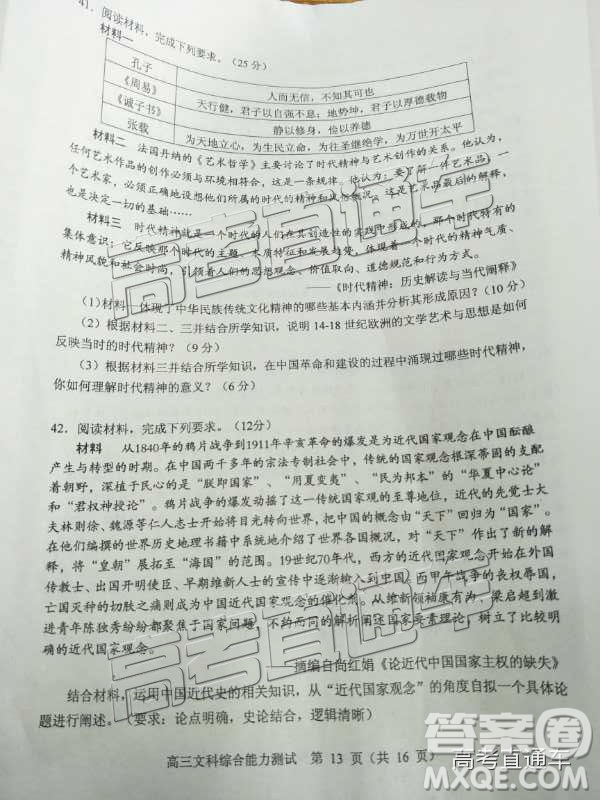 41．阅读材料，完成下列要求。（25 分）
材料一
孔子 人而无信，不知其可也
《周易》 天行健，君子以自强不息；地势坤，君子以厚德载物
《诫子书》 静以修身，俭以养德
张载 为天地立心，为生民立命，为往圣继绝学，为万世开太平
材料二 法国丹纳的《艺术哲学》主要讨论了时代精神与艺术创作的关系。他认为，
任何艺术作品的创作必须与环境相符合，这是一条规律。他认为：要了解一件艺术品，一
个艺术家，必须正确地设想他们所属的时代的精神和风俗概况。这是艺术品最后的解释，
也是决定一切的基础……
材料三 时代精神就是一个时代的人们在其创造性的实践中形成的，那个时代特有的
集体意识；它反映那个时代的主题、本质特征和发展趋势，体现着一个时代的精神气质、
精神风貌和社会时尚，引领着人们的思想观念、价值取向、道德规范和行为方式。
——《时代精神：历史解读与当代阐释》
（1）材料一体现了中华民族传统文化精神的哪些基本内涵并分析其形成原因？（10 分）
（2）根据材料二、三并结合所学知识，说明 14-18 世纪欧洲的文学艺术与思想是如何
反映当时的时代精神？（9 分）
（3）根据材料三并结合所学知识，在中国革命和建设的过程中涌现过哪些时代精神，
你如何理解时代精神的意义？（6 分）
42．阅读材料，完成下列要求。（12分）
材料 从1840年的鸦片战争到1911年辛亥革命的爆发是为近代国家观念在中国酝酿
产生与转型的时期。在中国两千多年的宗法专制社会中，传统的国家观念根深蒂固的支配
着朝野，深植于民心的是“朕即国家”、“用夏变夷”、“民为邦本”的“华夏中心论”
和“君权神授论”。鸦片战争的爆发动摇了这一传统国家观的至尊地位，近代的先觉士大
夫林则徐、魏源等仁人志士开始将目光转向世界，把中国的概念由“天下”回归为“国家”。
在他们编撰的世界历史地理书籍中系统地介绍了世界各国概貌，对“天下”作出了新的解
释，将“皇朝”展拓至“海国”的范围。19世纪70年代，西方的近代国家观念开始在外国
传教士、出国开明使臣、早期维新人士的宣传中逐渐输入到中国。西甲午战争的丧权辱国，
亡国灭种的切肤之痛则成为中国近代国家观念的催化剂。从维新领袖康有为、梁启超到激
进青年陈独秀纷纷都聚焦于国家问题，不约而同的解析以国家主权为要素理论，树立了比较明
晰的近代国家观念。
——摘编自尚红娟《论近代中国国家主权的缺失》
结合材料，运用中国近代史的相关知识，从“近代国家观念”的角度自拟一个具体论
题进行阐述。（要求：论点明确，史论结合，逻辑清晰）
高三文科综合能力测试 第 13 页（共 16 页）
高考直通车
高考直通车
答案圈
高考直通车